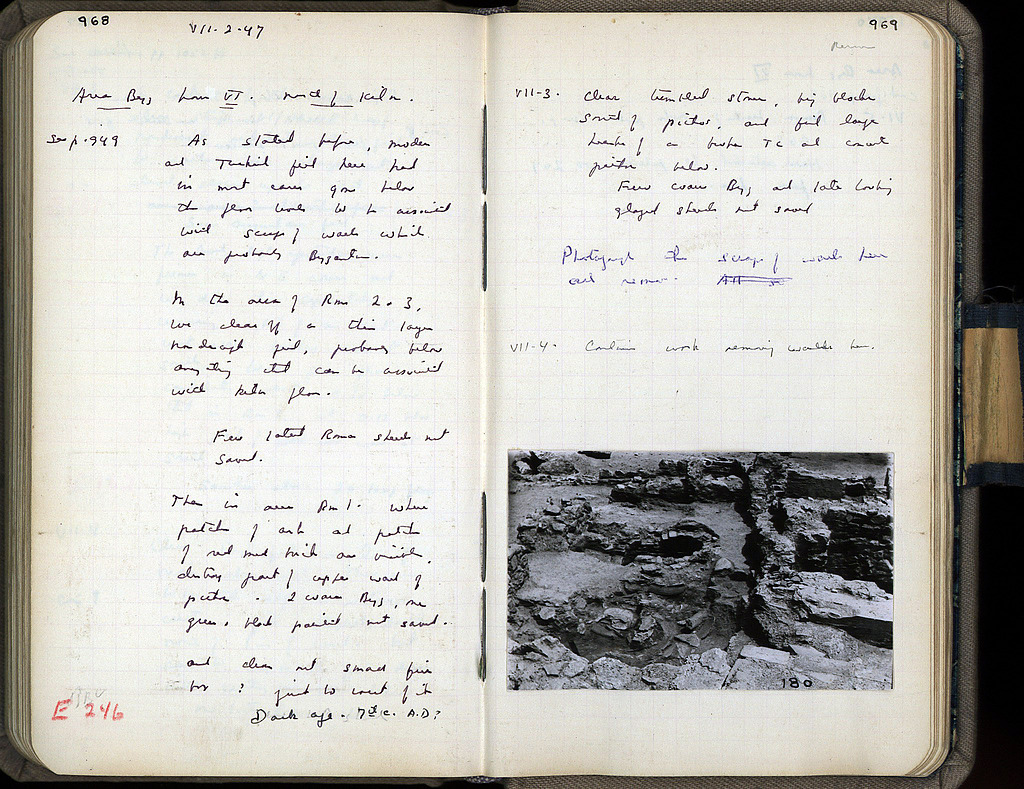 968
VII.2.47
Area Byz from VI. north of kiln.
See p. 949
As stated before, modern
and Turkish fill here had
in most cases gone below
the floor levels to be associated
with scraps of walls which
are probably Byzantine.
In the area of Rms 2 + 3,
we clear off a thin layer
nondescript fill, probably below
anything that can be associated
with kiln floor.
Few late Roman sherds not
saved.
Then in area Rm 1. where
patch of ash and patch
of red mud brick are visible,
destroy part of upper wall of
pithos. 2 coarse Byz, one
green + black painted not saved.
and clean out small fire
box ? just to west of it
Dark age. 7th c. A.D?
E 246
969
VII-3. Clear tumbled stones, big blocks
south of pithos, and find large
of a broken TC and
pithos below.
Few coarse Byz and late looking
glazed sherds not saved
Photograph the scraps of walls here
and remove. All so
VII-4. Continue work removing walls here.
180